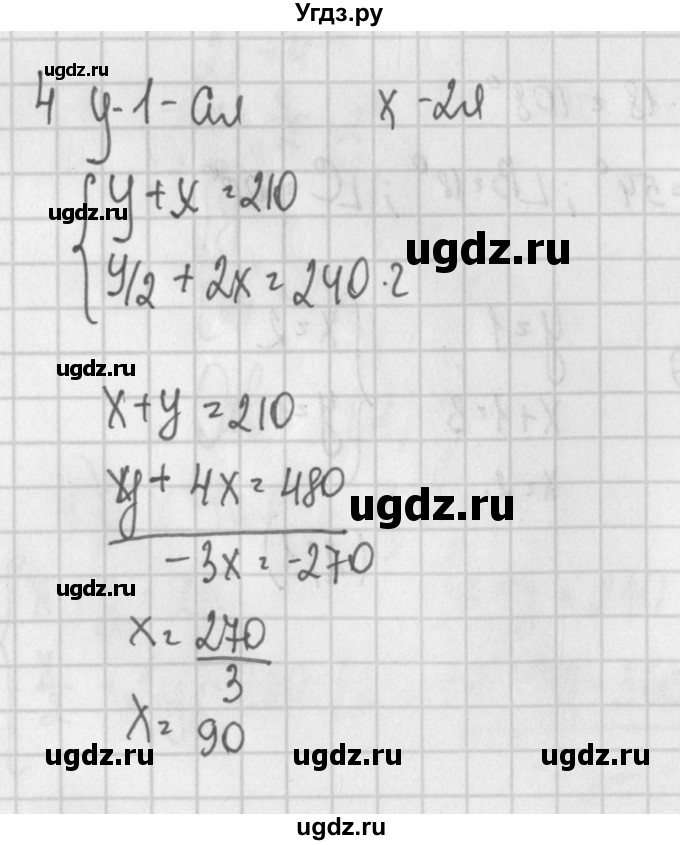 Угдз.ру
ugdz.ru
4 y-1-ая x-2я
y + x = 210
ugdz.ru
ugdz.ru
y/2 + 2x = 240 · 2
ugdz.ru
x + y = 210
y + 4x = 480
ugdz.ru
- 3x = -270
ugdz.ru
x = 270
3
x = 90
ugdz.ru ugdz.ru ugdz.ru
ugdz.ru